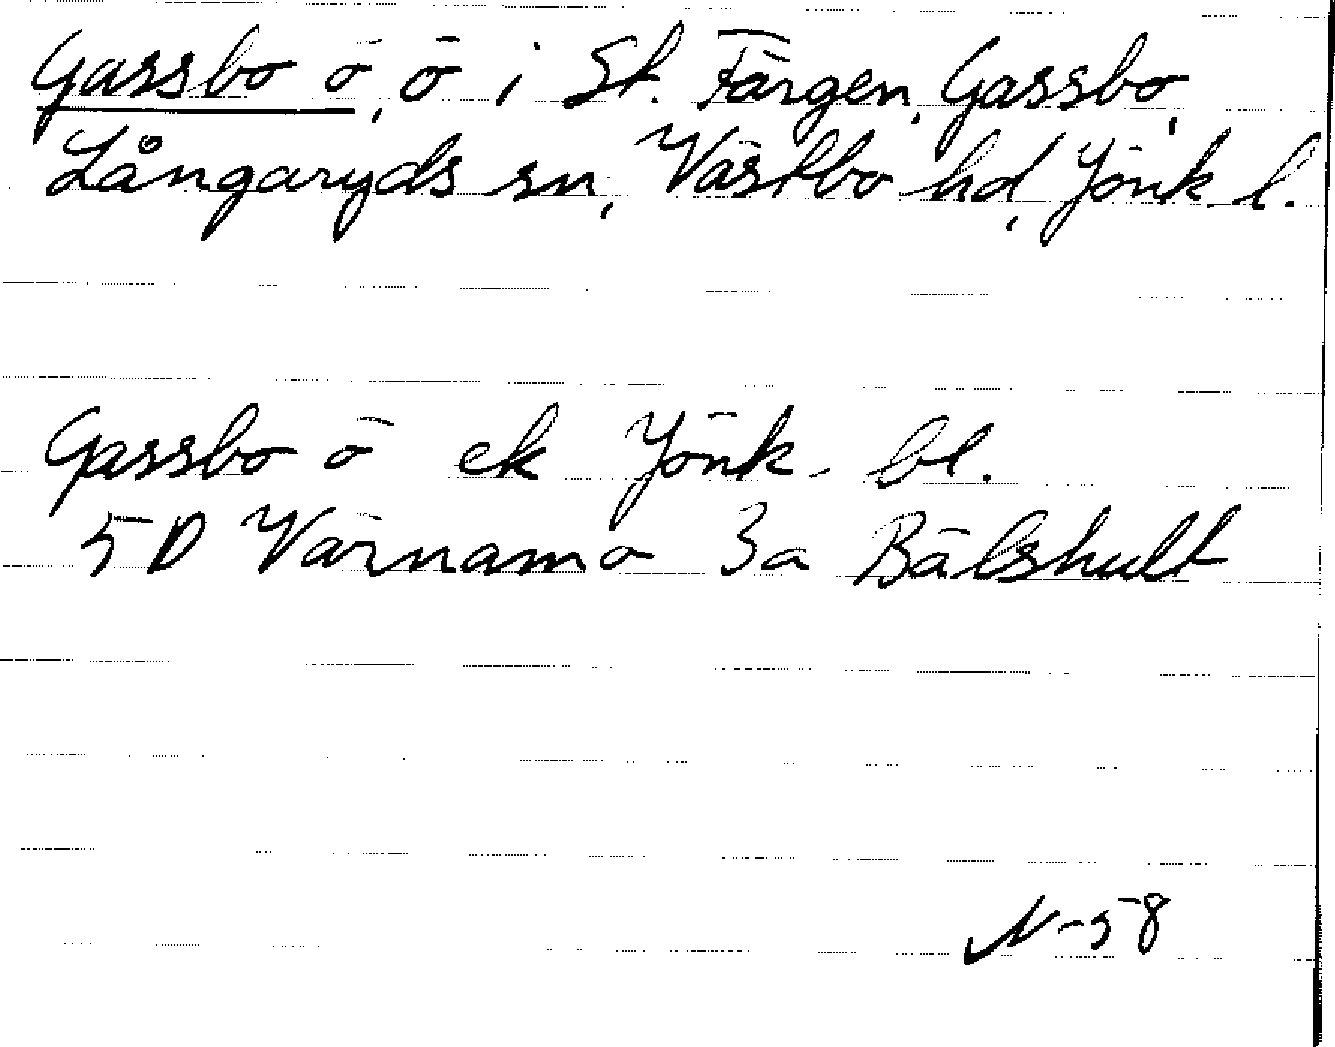 Gassbo ö, ö i St. Färgen, Gassbo,
Långaryds sn, Västbo hd, Jönk. l.
Gassbo ö ek Jönk. bl.
5D Värnamo 3a Bälshult
N-58